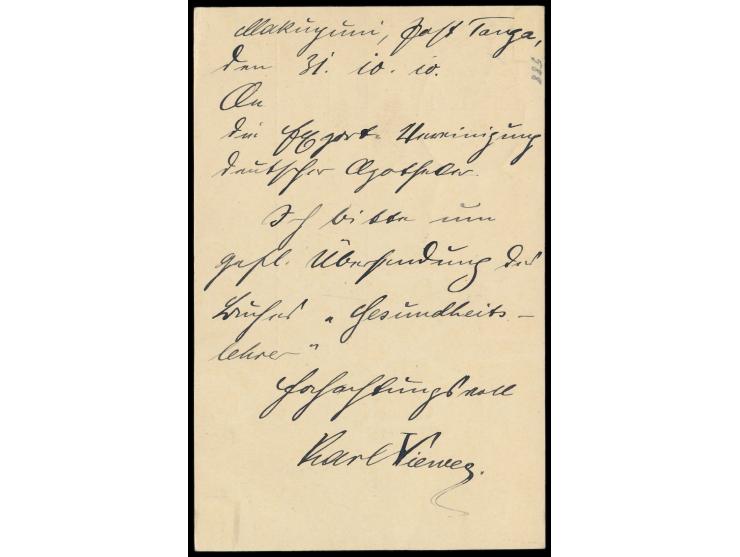 Makuyuni, Post Tanga,
den 31. 10. 10.
An
die Export-Vereinigung
deutscher Apotheker.
Ich bitte um
gefl. Übersendung des
Buches „Gesundheits-
lehrer"
Hochachtungsvoll
Karl Vieweg.
588